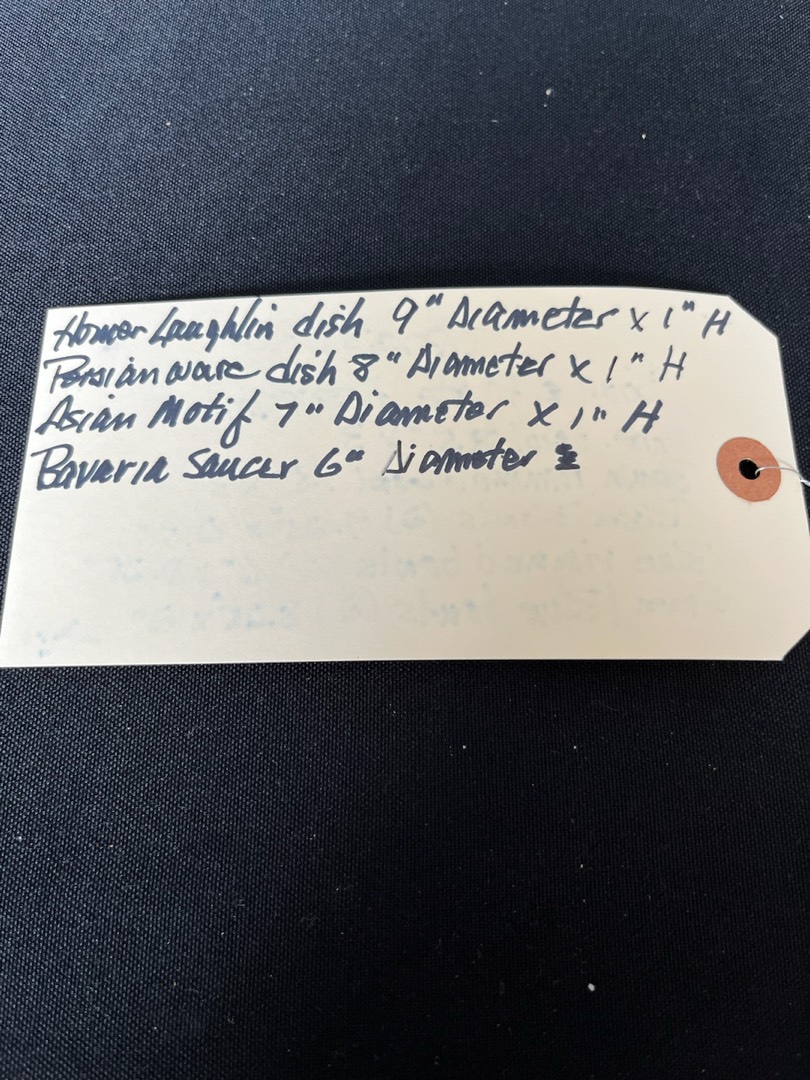 Homer Laughlin dish 9" Diameter x 1" H
Persian ware dish 8" Diameter x 1" H
Asian Motif 7" Diameter x 1" H
Bavaria Saucer 6" Diameter